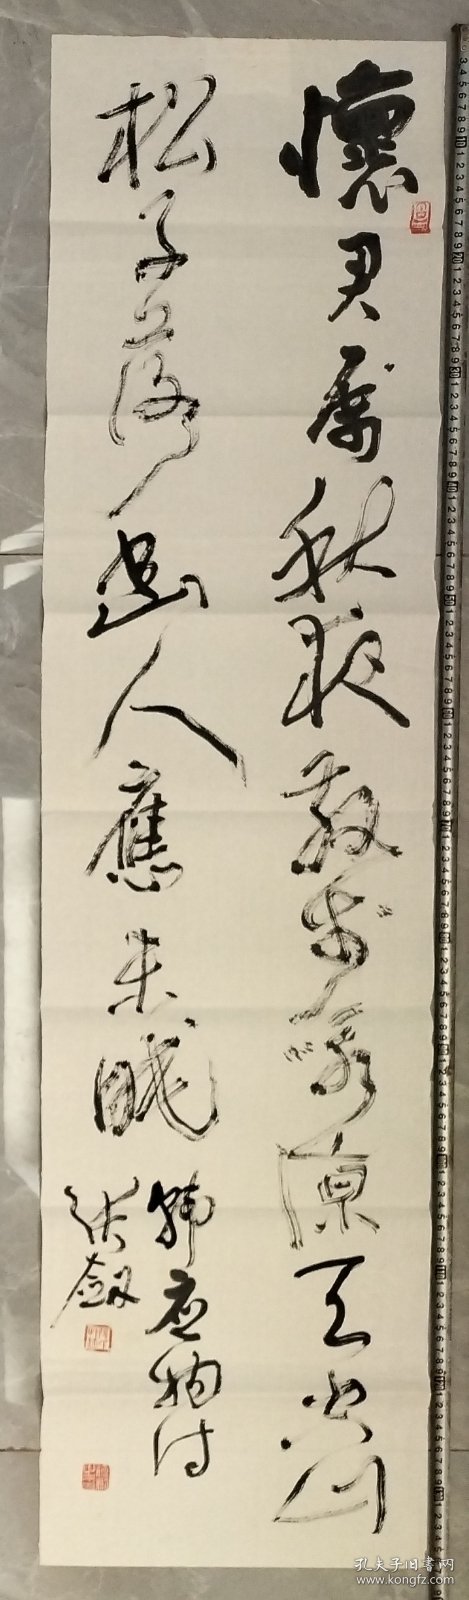 懷君屬秋夜散步詠涼天空山
松子落幽人應未眠
韋應物詩
孔夫子旧书网
www.kongfz.com